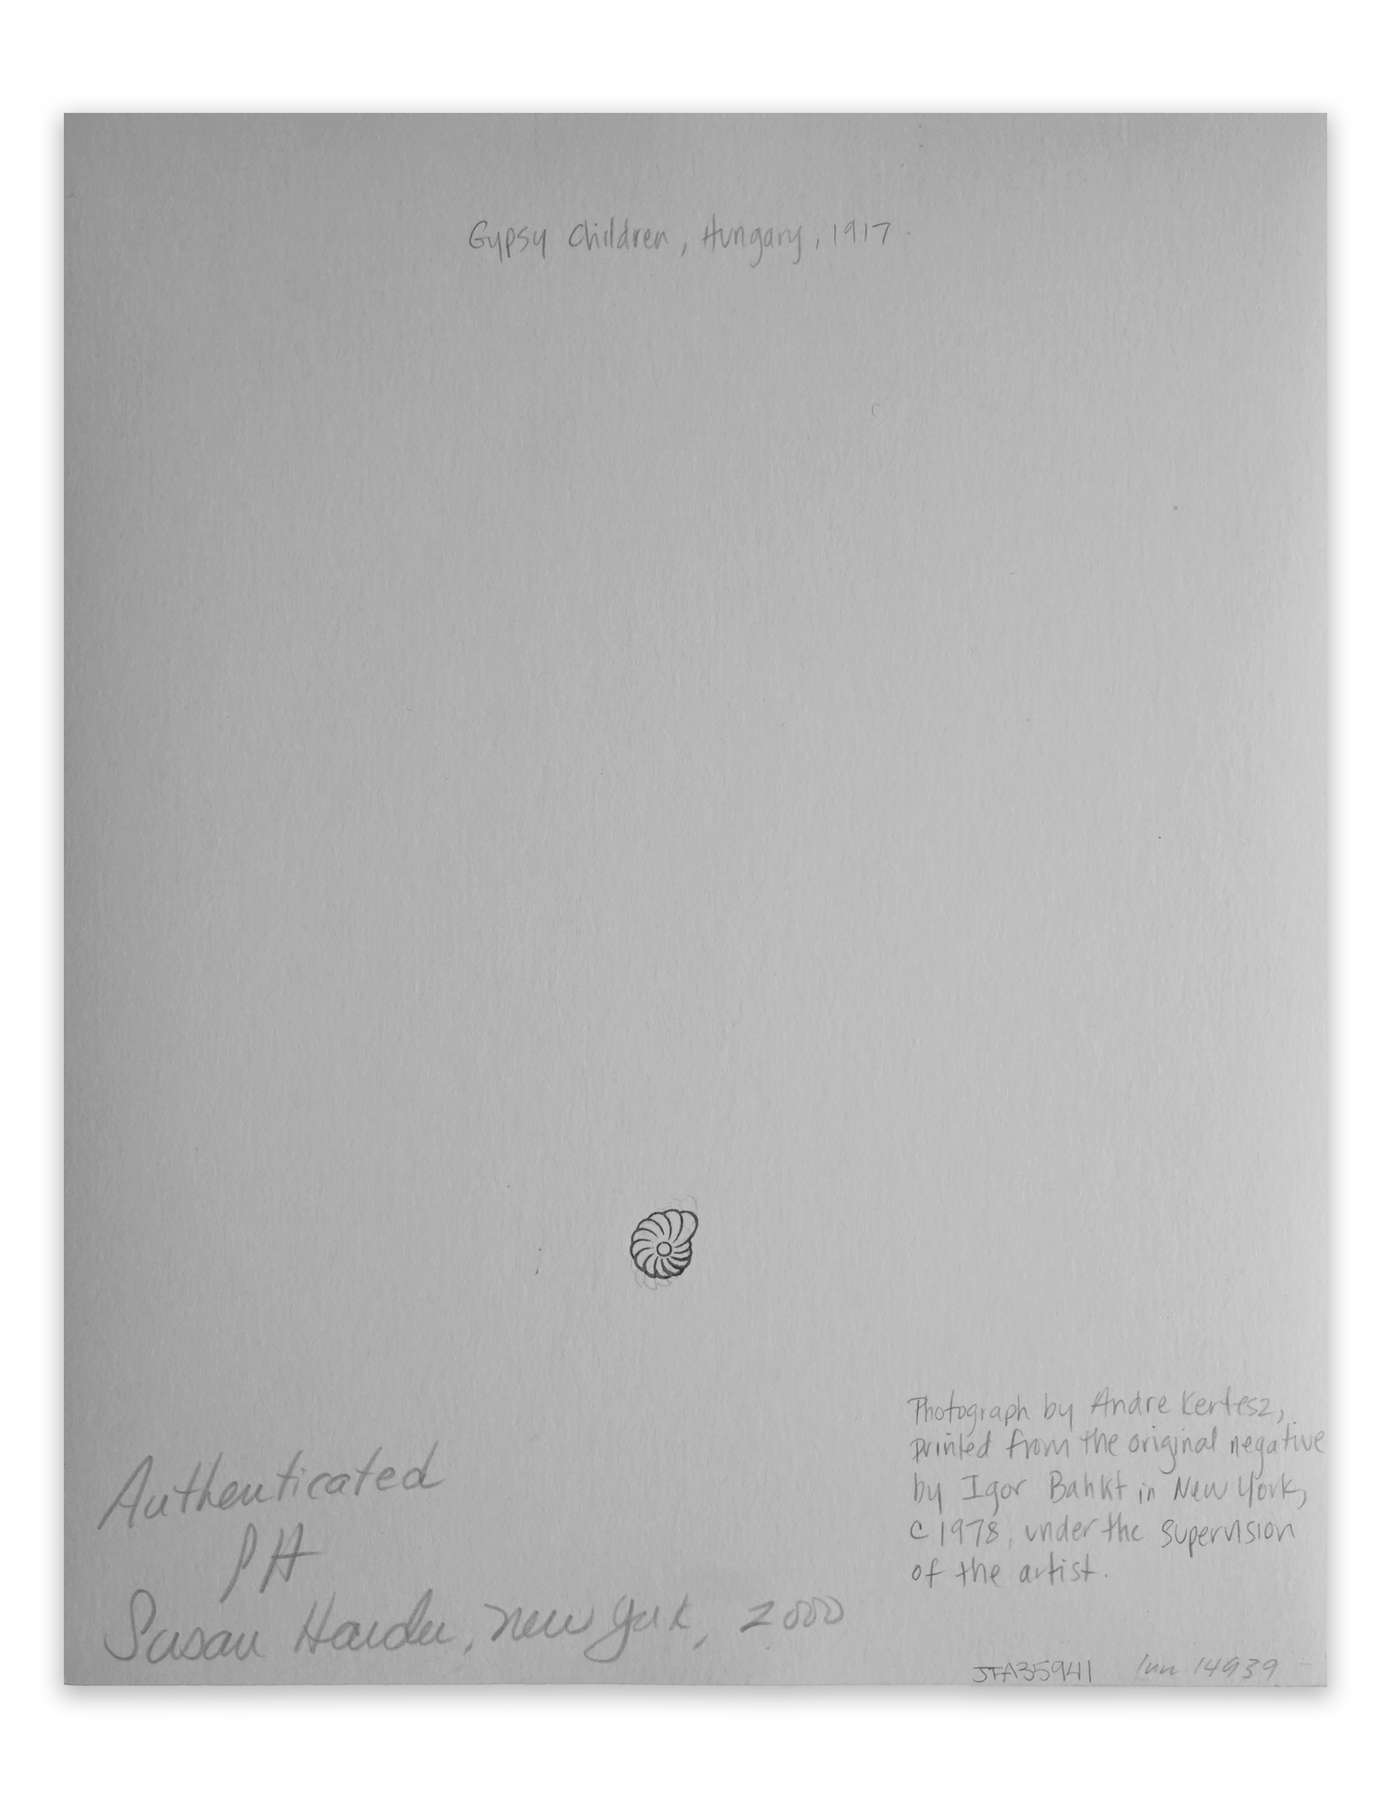 Gypsy Children, Hungary, 1917.
Photograph by Andre Kertesz,
printed from the original negative
by Igor Bahkt in New York,
c 1978, under the supervision
of the artist.
Authenticated
Susan Harder, New York, 2000
JTA35941 14939